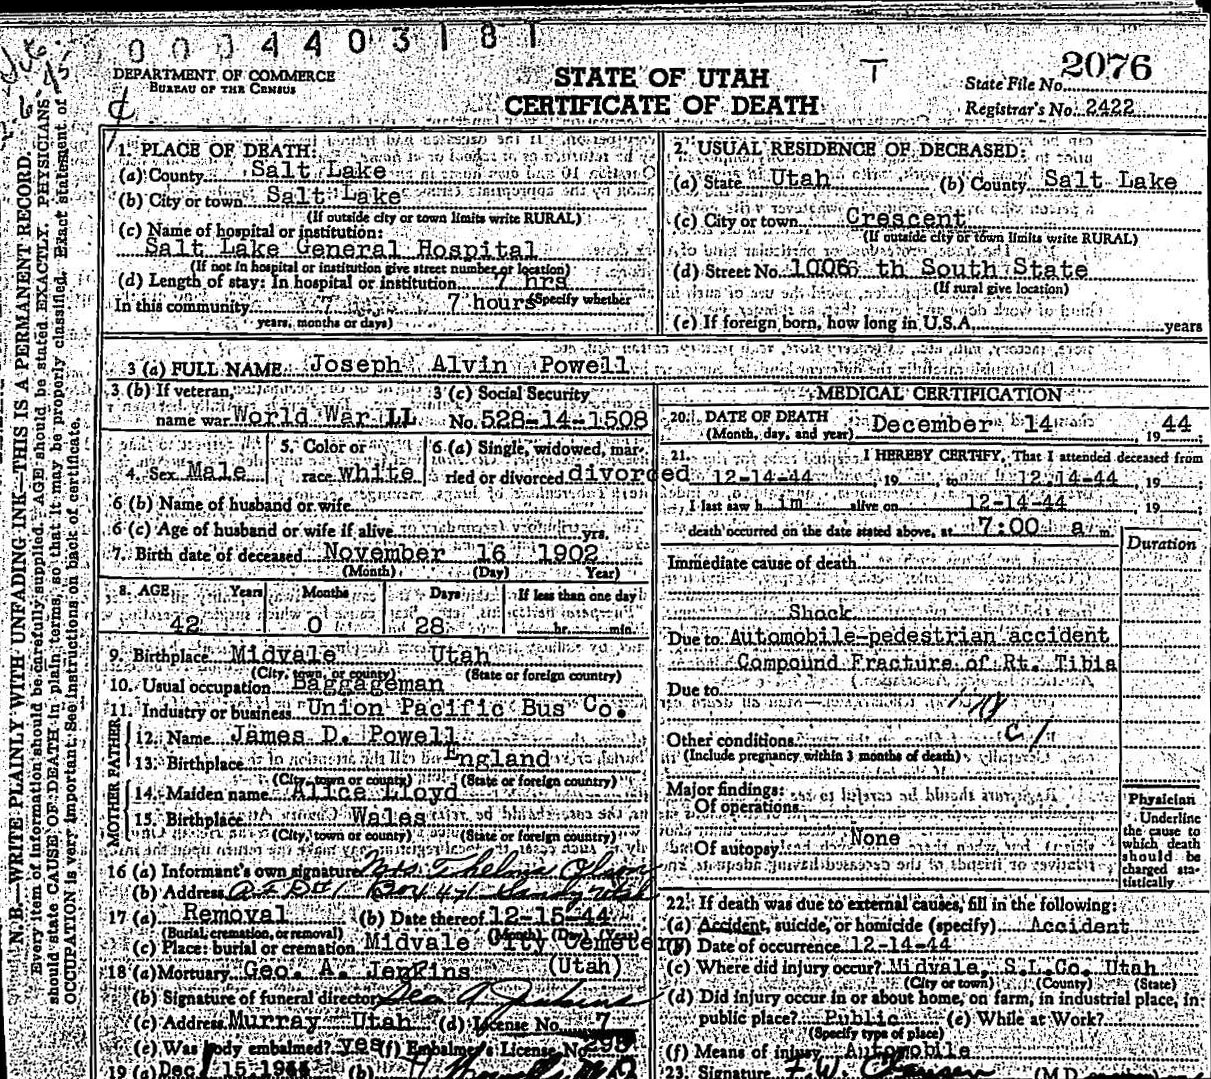 0004403181
DEPARTMENT OF COMMERCE
BUREAU OF THE CENSUS
STATE OF UTAH
CERTIFICATE OF DEATH
T
State File No. 2076
Registrar's No. 2422
N.B.—WRITE PLAINLY WITH UNFADING INK—THIS IS A PERMANENT RECORD.
Every item of information should be carefully supplied. AGE should be stated EXACTLY. PHYSICIANS
should state CAUSE OF DEATH in plain terms, so that it may be properly classified. Exact statement of
OCCUPATION is very important. See instructions on back of certificate.
1. PLACE OF DEATH:
(a) County Salt Lake
(b) City or town Salt Lake
(If outside city or town limits write RURAL)
(c) Name of hospital or institution:
Salt Lake General Hospital
(If not in hospital or institution give street number or location)
(d) Length of stay: In hospital or institution 7 hrs
In this community 7 hours Specify whether
years, months or days)
2. USUAL RESIDENCE OF DECEASED:
(a) State Utah (b) County Salt Lake
(c) City or town Crescent
(If outside city or town limits write RURAL)
(d) Street No. th South State
(If rural give location)
(e) If foreign born, how long in U.S.A. years
3 (a) FULL NAME Joseph Alvin Powell
3 (b) If veteran, 3 (c) Social Security
name war World War II No. 528-14-1508
4. Sex Male 5. Color or race white 6 (a) Single, widowed, married or divorced divorced
6 (b) Name of husband or wife
6 (c) Age of husband or wife if alive yrs.
7. Birth date of deceased November 16 1902
(Month) (Day) Year)
8. AGE Years Months Days If less than one day
42 0 28 hr. min.
9. Birthplace Midvale Utah
(City, town, or county) (State or foreign country)
10. Usual occupation Baggageman
11. Industry or business Union Pacific Bus Co.
FATHER
12. Name James D. Powell
13. Birthplace England
(City, town or county) (State or foreign country)
MOTHER
14. Maiden name Alice Lloyd
15. Birthplace Wales
(City, town or county) (State or foreign country)
16 (a) Informant's own signature Mrs. Thelma Olson
(b) Address Box 471 Sandy Utah
17 (a) Removal (b) Date thereof 12-15-44
(Burial, cremation, or removal) (Month) (Day) (Year)
(c) Place: burial or cremation Midvale City Cemetery
18 (a) Mortuary Geo. A. Jenkins (Utah)
(b) Signature of funeral director Geo A Jenkins
(c) Address Murray Utah (d) License No. 7
(e) Was body embalmed? yes (f) Embalmer's License No. 295
19 (a) Dec 15-1944 (b)
MEDICAL CERTIFICATION
20. DATE OF DEATH December 14 1944
(Month, day, and year)
21. I HEREBY CERTIFY, That I attended deceased from
12-14-44, 19 , to 12-14-44, 19
I last saw him alive on 12-14-44 19
death occurred on the date stated above, at 7:00 a m.
Duration
Immediate cause of death
Shock
Due to Automobile-pedestrian accident
Compound Fracture of Rt. Tibia
Due to
Other conditions
(Include pregnancy within 3 months of death)
Major findings:
Of operations
Of autopsy None
Physician
Underline
the cause to
which death
should be
charged sta-
tistically
22. If death was due to external causes, fill in the following:
(a) Accident, suicide, or homicide (specify) Accident
(b) Date of occurrence 12-14-44
(c) Where did injury occur? Midvale, S.L.Co. Utah
(City or town) (County) (State)
(d) Did injury occur in or about home, on farm, in industrial place, in
public place? Public (e) While at Work?
(Specify type of place)
(f) Means of injury Automobile
23. Signature F.W. (M.D.